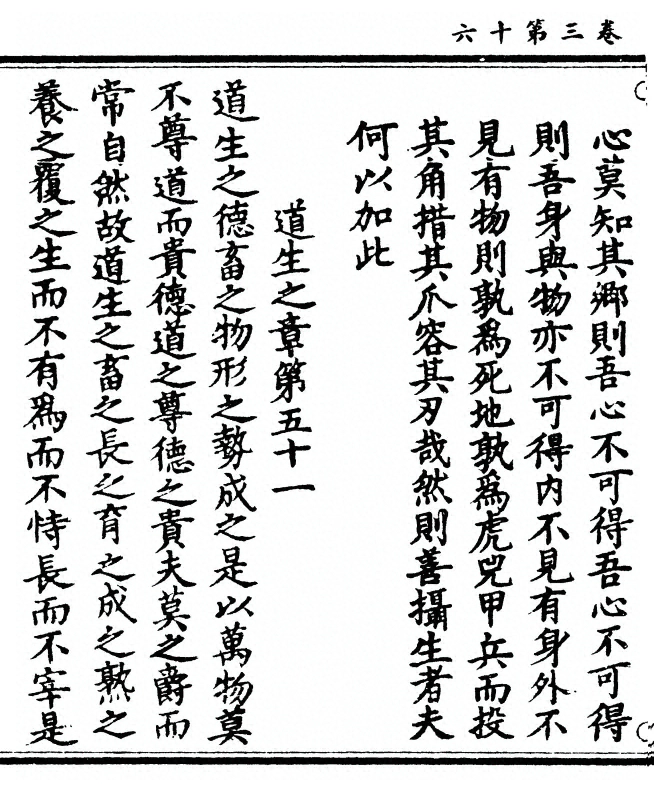 卷三第十六
心莫知其鄉則吾心不可得吾心不可得
則吾身與物亦不可得内不見有身外不
見有物則孰爲死地孰爲虎兕甲兵而投
其角措其爪容其刃哉然則善攝生者夫
何以加此
道生之章第五十一
道生之德畜之物形之勢成之是以萬物莫
不尊道而貴德道之尊德之貴夫莫之爵而
常自然故道生之畜之長之育之成之熟之
養之覆之生而不有爲而不恃長而不宰是